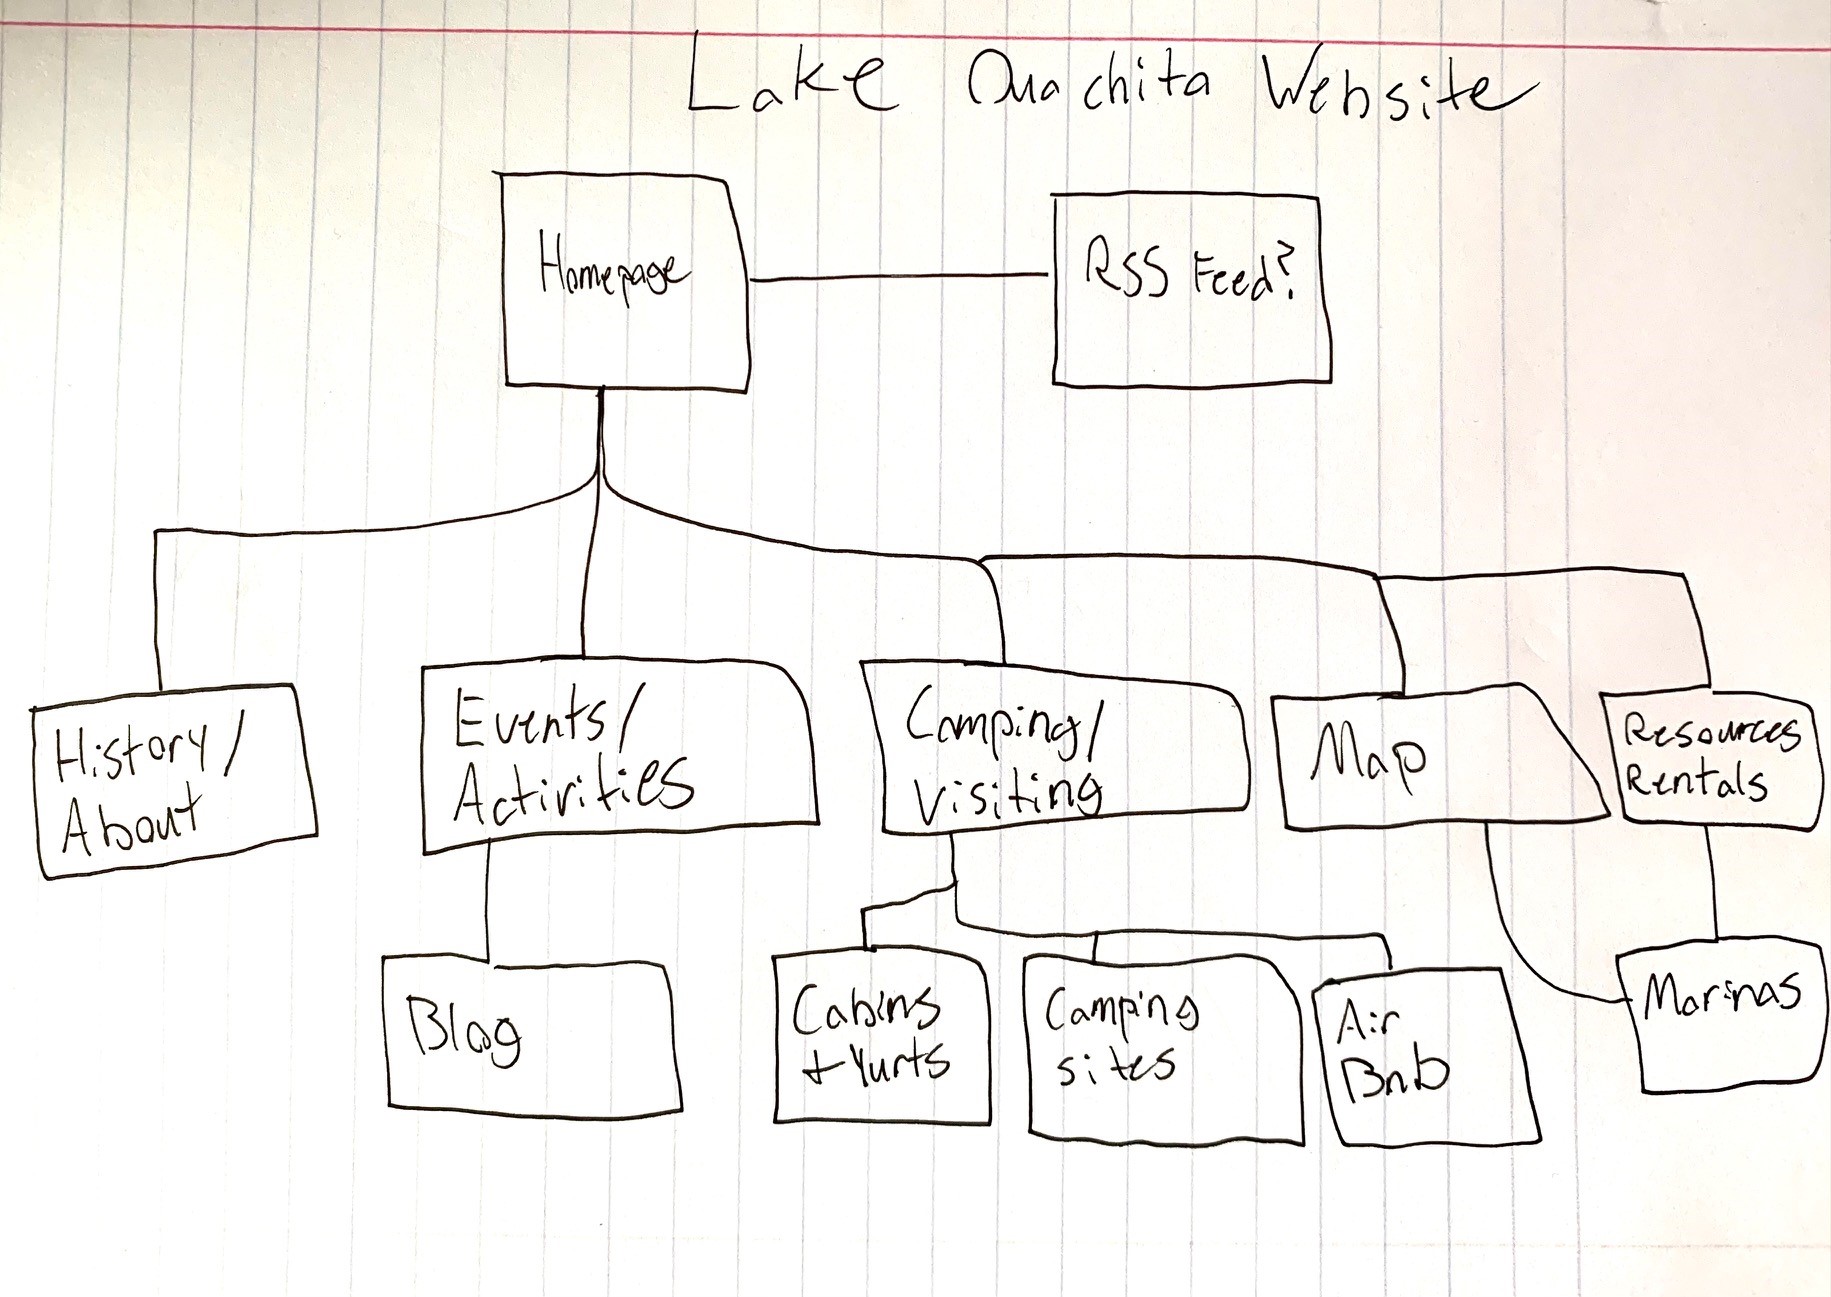 Lake Ouachita Website
Homepage
RSS Feed?
History/
About
Events/
Activities
Camping/
Visiting
Map
Resources
Rentals
Blog
Cabins
+ Yurts
Camping
sites
Air
Bnb
Marinas